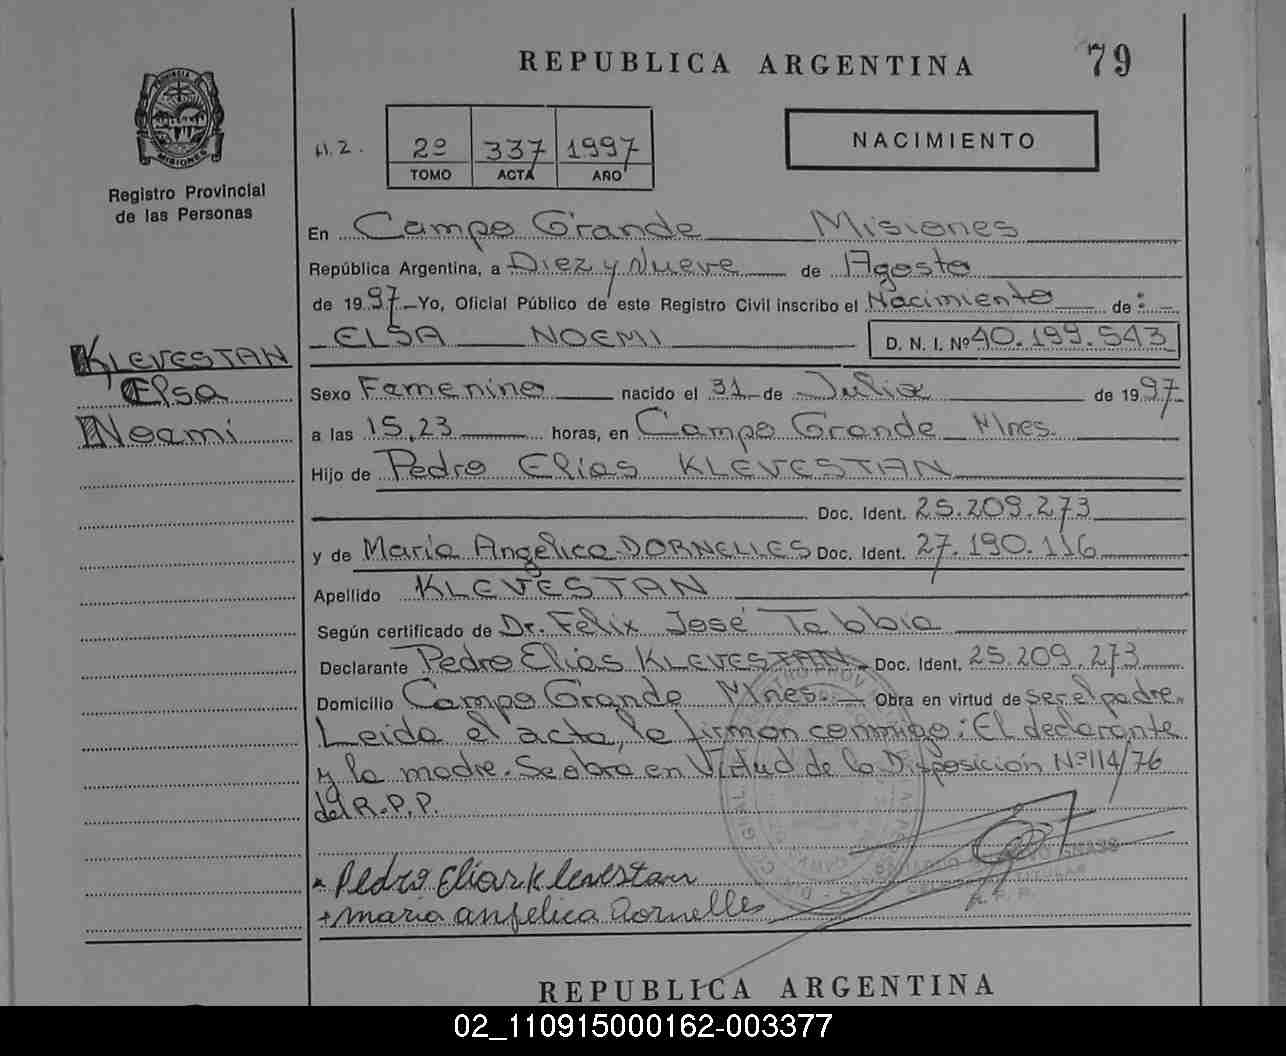 REPUBLICA ARGENTINA
79
PROVINCIA DE
MISIONES
Registro Provincial
de las Personas
2º 337 1997
TOMO ACTA AÑO
NACIMIENTO
En Campo Grande Misiones
República Argentina, a Diez y Nueve de Agosto
de 1997 Yo, Oficial Público de este Registro Civil inscribo el Nacimiento de:
ELSA NOEMI D. N. I. Nº 40.199.543
KLEVESTAN
Elsa
Noemi
Sexo Femenino nacido el 31 de Julio de 1997
a las 15,23 horas, en Campo Grande Mnes.
Hijo de Pedro Elias KLEVESTAN
Doc. Ident. 25.209.273
y de María Angélica DORNELLES Doc. Ident. 27.190.116
Apellido KLEVESTAN
Según certificado de Dr. Félix José Tabbia
Declarante Pedro Elias KLEVESTAN Doc. Ident. 25.209.273
Domicilio Campo Grande Mnes. Obra en virtud de ser el padre.
Leida el acta, la firman conmigo: El declarante
y la madre. Se obra en Virtud de la Disposición Nº 114/76
del R.P.P.
Pedro Elias Klevestan
maria anjelica Dornelles
REPUBLICA ARGENTINA
02_110915000162-003377